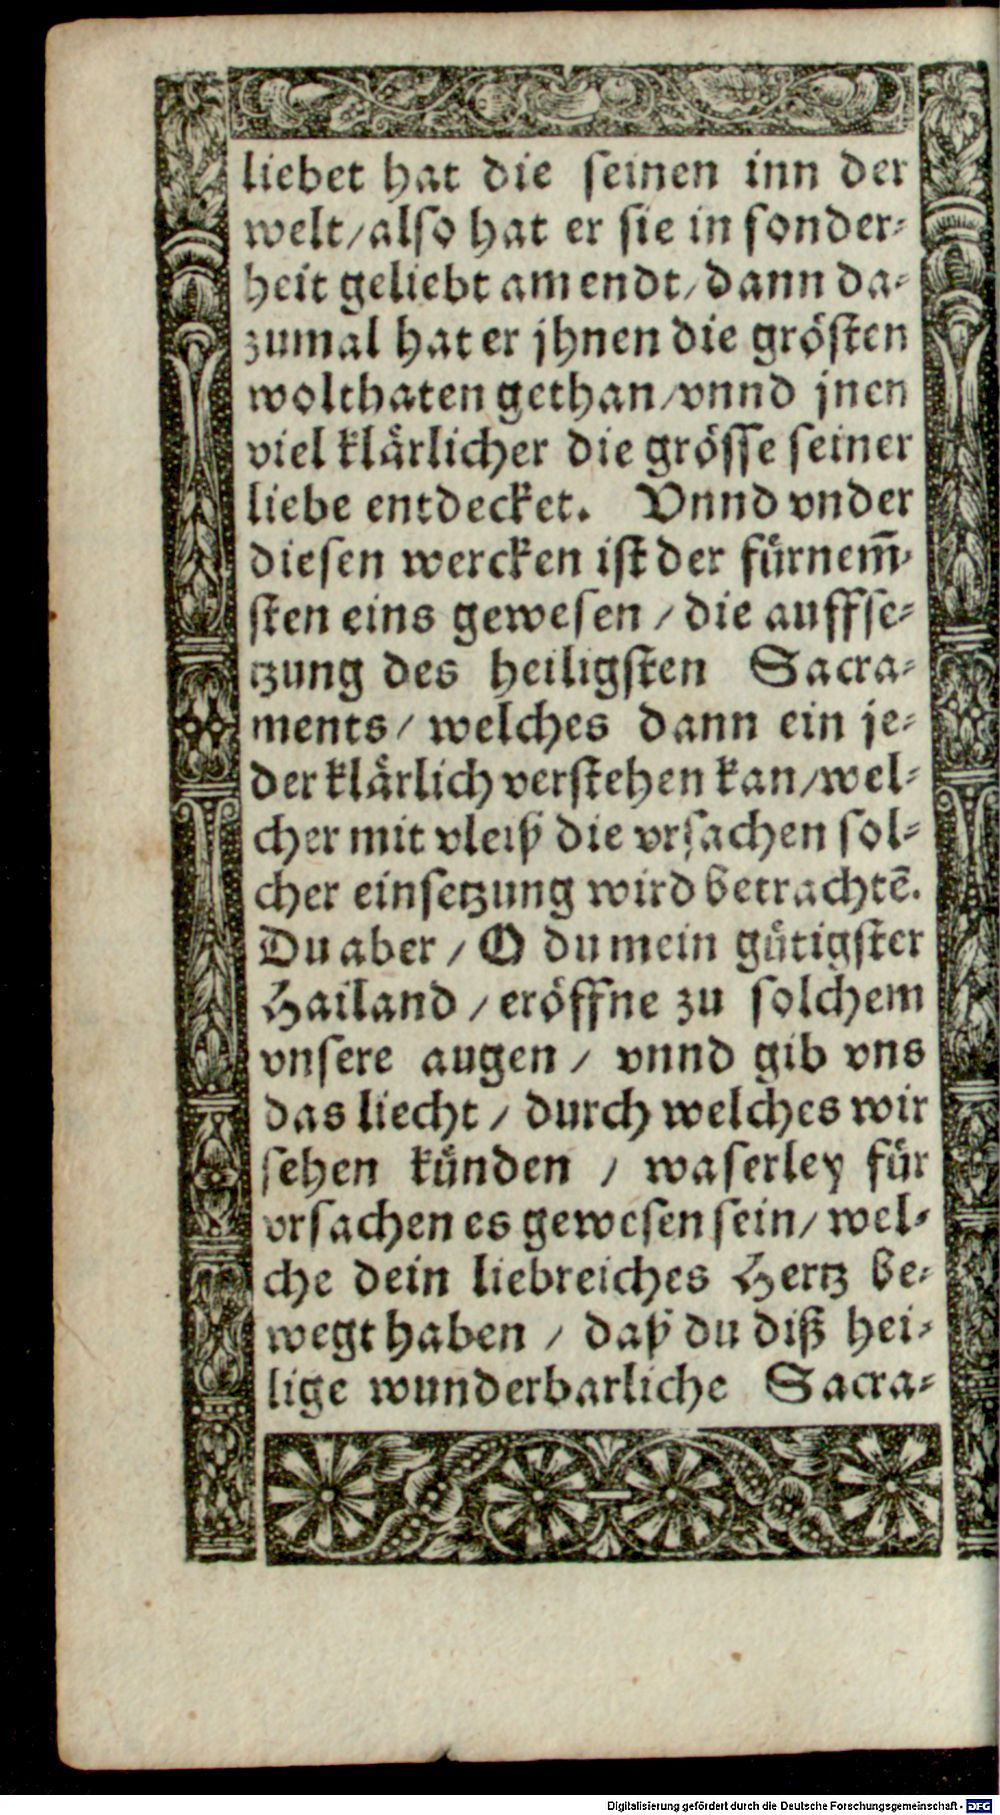 liebet hat die seinen inn der
welt/also hat er sie in sonder-
heit geliebt am endt/dann da-
zumal hat er jhnen die grösten
wolthaten gethan/vnnd jnen
viel klärlicher die grösse seiner
liebe entdecket. Vnnd vnder
diesen wercken ist der fürnem̃-
sten eins gewesen / die auffse-
tzung des heiligsten Sacra-
ments/ welches dann ein je-
der klärlich verstehen kan/wel-
cher mit vleiß die vrsachen sol-
cher einsetzung wird betrachtẽ.
Du aber / O du mein gütigster
Hailand / eröffne zu solchem
vnsere augen / vnnd gib vns
das liecht / durch welches wir
sehen künden / waserley für
vrsachen es gewesen sein/ wel-
che dein liebreiches Hertz be-
wegt haben / daß du diß hei-
lige wunderbarliche Sacra-
Digitalisierung gefördert durch die Deutsche Forschungsgemeinschaft - DFG